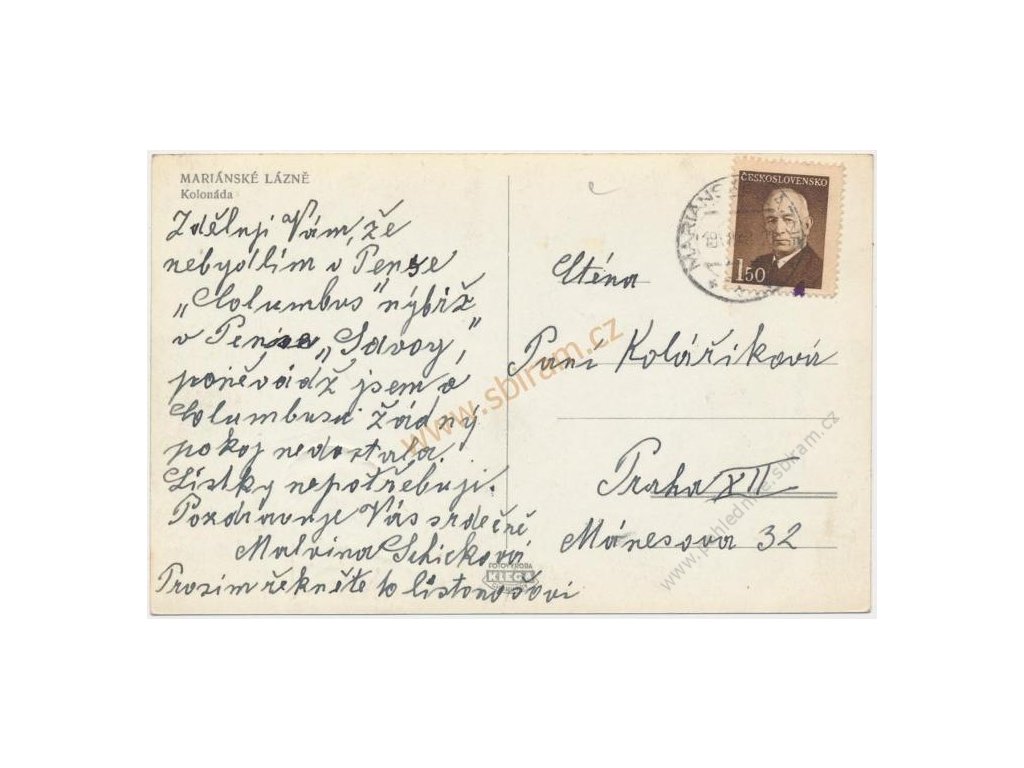 MARIÁNSKÉ LÁZNĚ
Kolonáda
Zděluji Vám, že
nebydlím v Pense
„Columbus", nýbrž
v Pense „Savoy"
poněvádž jsem v
Columbusu žádný
pokoj nedostala.
Lístky nepotřebuji.
Pozdravuje Vás srdečně
Malvina Schicková
Prosím řekněte to listonošovi
FOTOVÝROBA
ČESKOSLOVENSKO
1.50
Ctěná
Paní Koláříková
Praha XII
Mánesova 32
www.sbiram.cz